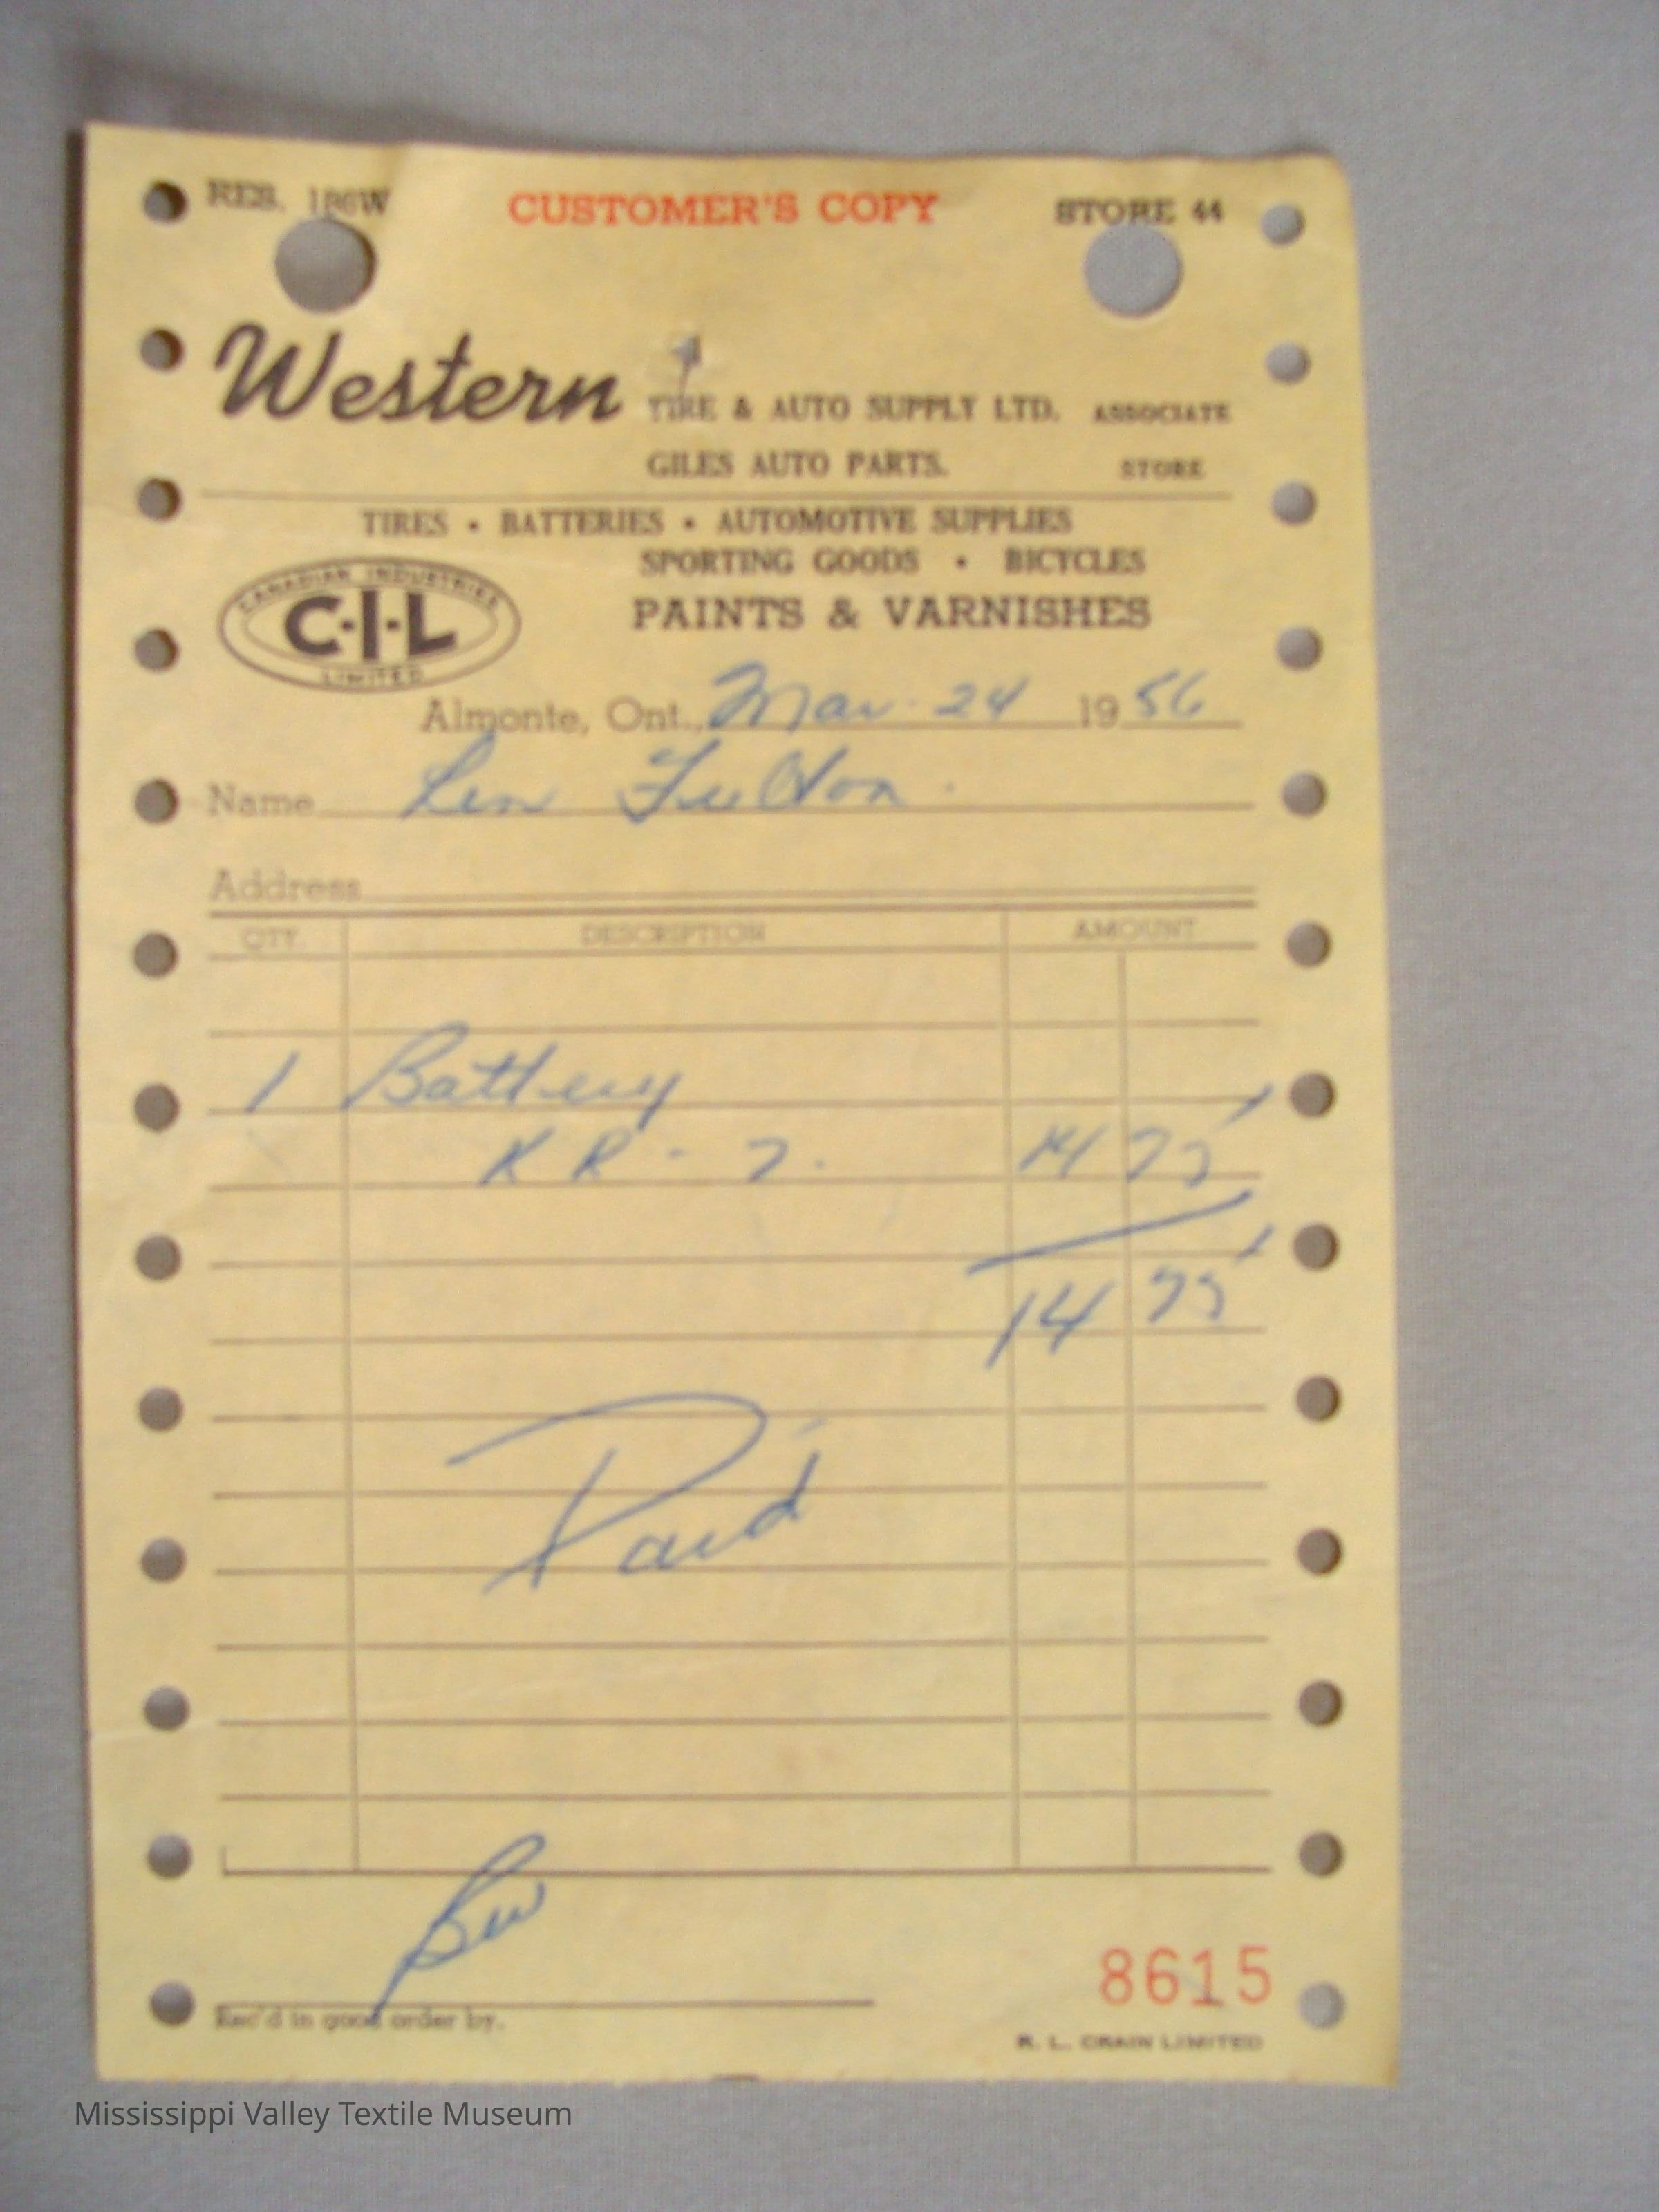 RES. 186W CUSTOMER'S COPY STORE 44
Western TIRE & AUTO SUPPLY LTD. ASSOCIATE
GILES AUTO PARTS. STORE
TIRES • BATTERIES • AUTOMOTIVE SUPPLIES
SPORTING GOODS • BICYCLES
CANADIAN INDUSTRIES
C-I-L
LIMITED
PAINTS & VARNISHES
Almonte, Ont., Mar. 24 1956
Name Len Fulton.
Address
QTY. DESCRIPTION AMOUNT
1 Battery
KR-7. 14 75
14 75
Paid
Rec'd in good order by.
8615
R. L. CRAIN LIMITED
Mississippi Valley Textile Museum